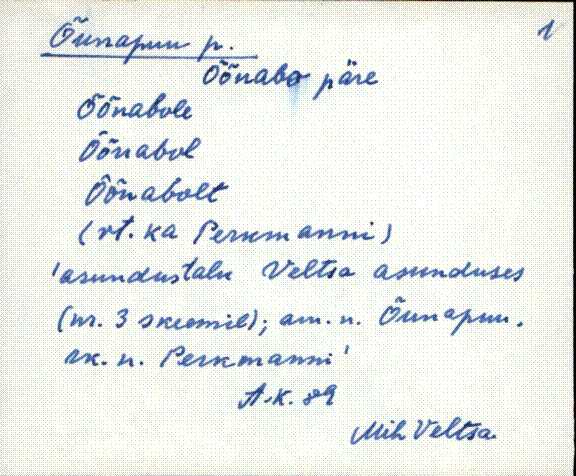 Õunapuu p. 1
Õõnabo päre
Õõnabole
Õõnabol
Õõnabolt
(vt. ka Perkmanni)
'asundustalu Veltsa asunduses
(nr. 3 skeemil); am. n. Õunapuu.
rk. n. Perkmanni'
A.K. 89
Mih Veltsa